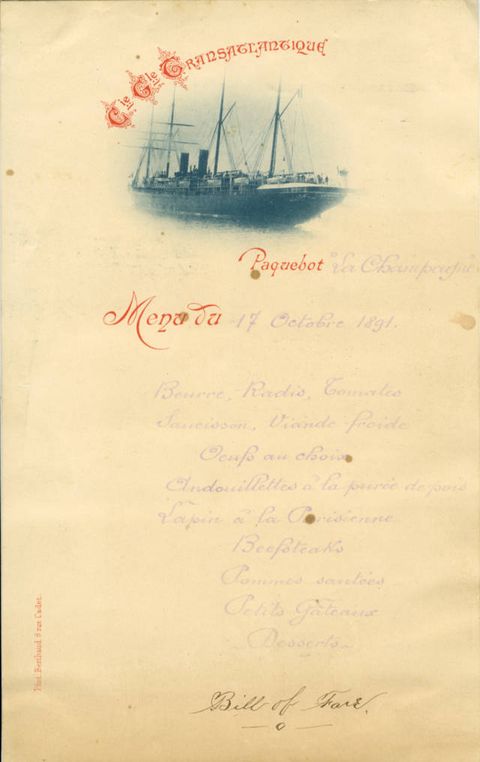 Cie Gle Transatlantique
Paquebot "La Champagne"
Menu du 17 Octobre 1891.
Beurre, Radis, Tomates
Saucisson, Viande froide
Oeufs au choix
Andouillettes à la purée de pois
Lapin à la Parisienne
Beefsteaks
Pommes sautées
Petits Gâteaux
Desserts
Bill of Fare.
Phot. Berthaud 9 rue Cadet.